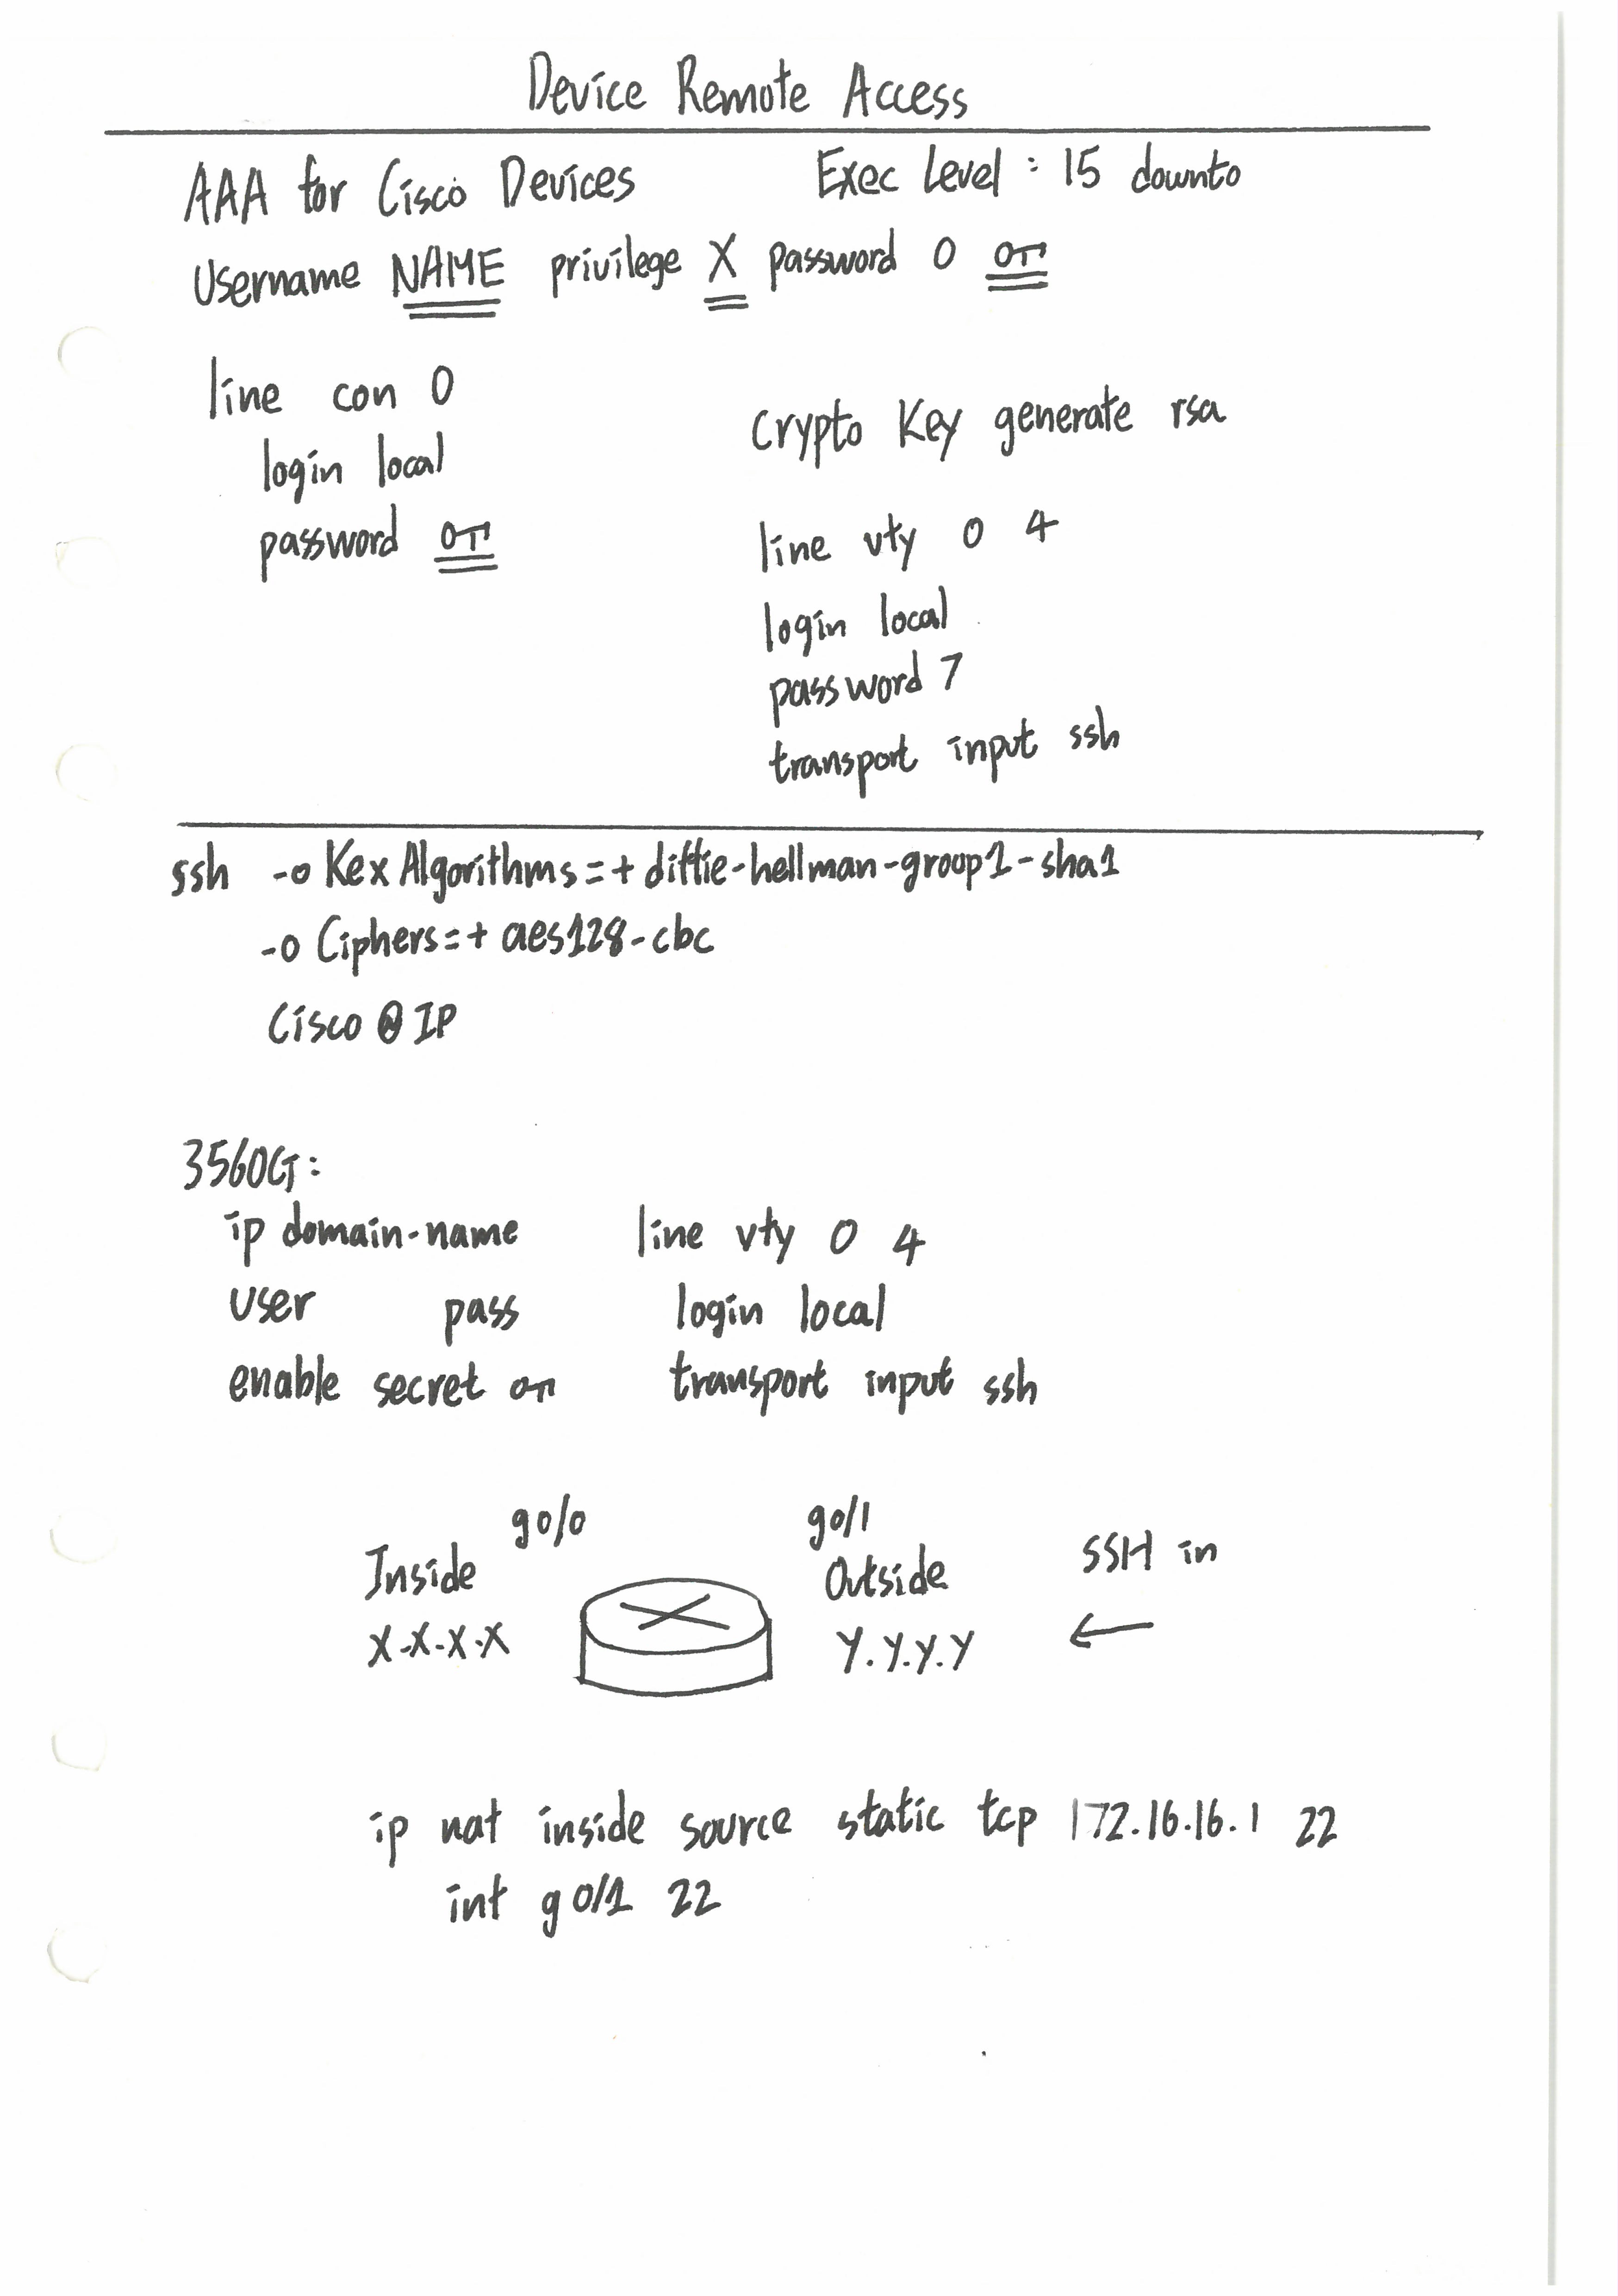 Device Remote Access
AAA for Cisco Devices Exec Level : 15 downto
Username NAME privilege X password 0
line con 0
login local
password
crypto Key generate rsa
line vty 0 4
login local
password 7
transport input ssh
ssh -o KexAlgorithms=+diffie-hellman-group1-sha1
-o Ciphers=+aes128-cbc
Cisco@IP
3560G:
ip domain-name
user pass
enable secret
line vty 0 4
login local
transport input ssh
g0/0
Inside
X.X.X.X
g0/1
Outside
Y.Y.Y.Y
SSH in
ip nat inside source static tcp 172.16.16.1 22
int g0/1 22